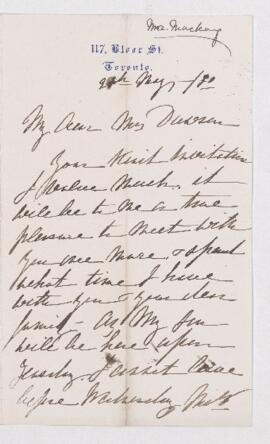 Mrs. Mackay
117, Bloor St.
Toronto.
May
My dear Mrs Dawson
Your kind invitation
I value much, it
will be to me a true
pleasure to meet with
you once more & spend
what time I have
with you & your dear
family - As My Son
will be here upon
Tuesday I cannot leave
before Wednesday